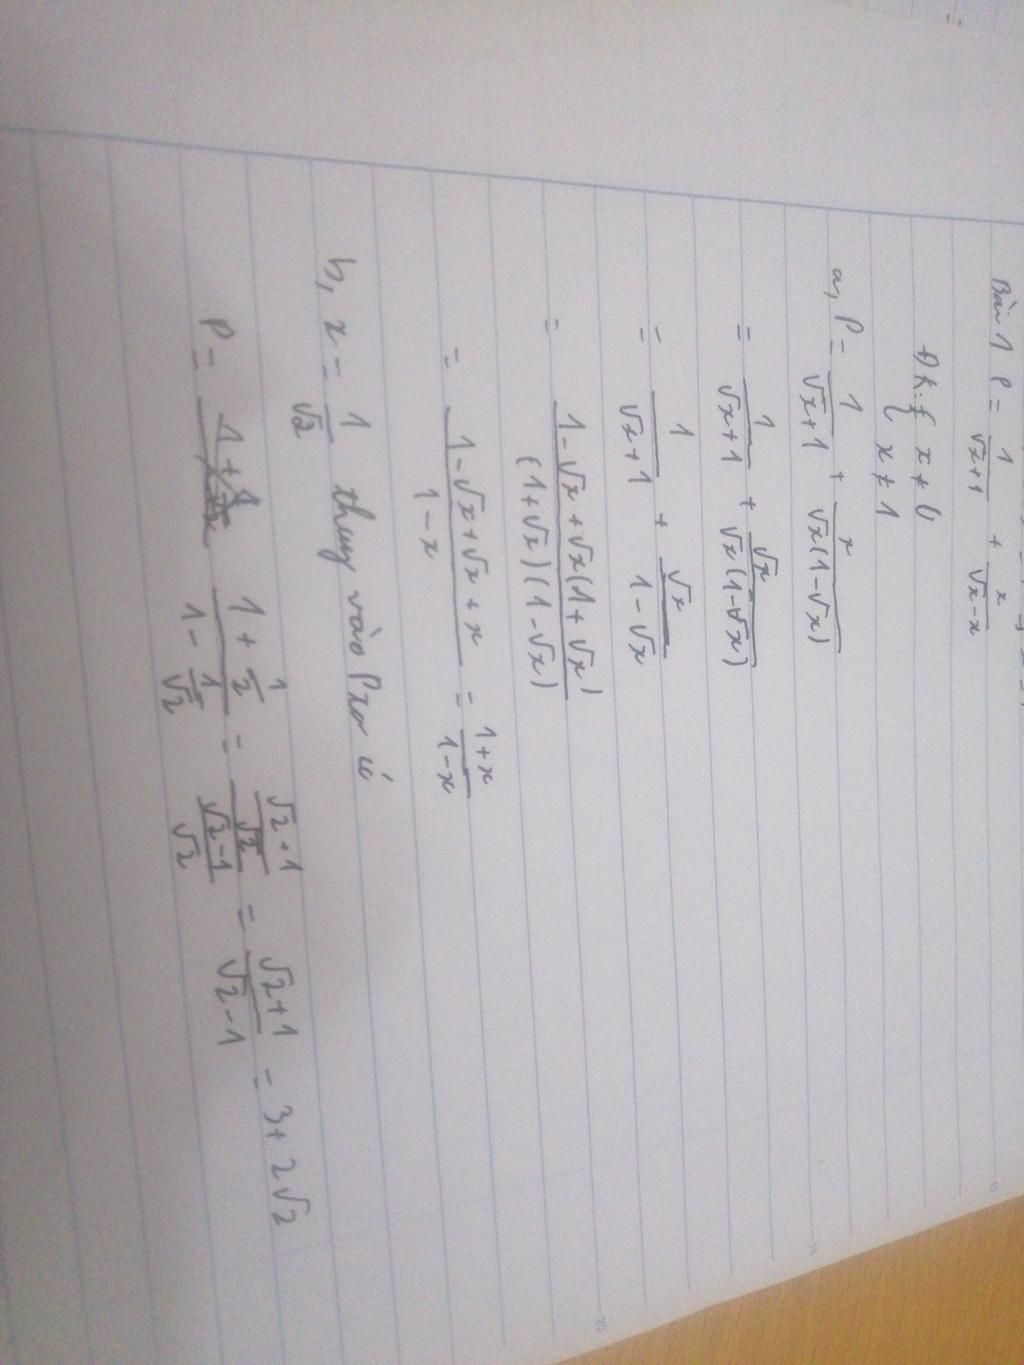 Bài 1 P = 1/(√x+1) + x/(√x-x)
ĐK: { x ≠ 0
{ x ≠ 1
a, P = 1/(√x+1) + x/(√x(1-√x))
= 1/(√x+1) + √x/(√x(1-√x))
= 1/(√x+1) + √x/(1-√x)
= (1-√x+√x(1+√x))/((1+√x)(1-√x))
= (1-√x+√x+x)/(1-x) = (1+x)/(1-x)
b, x = 1/√2 thay vào P ta có
P = (1+1/2)/(1-1/√2) = ((√2+1)/√2)/((√2-1)/√2) = (√2+1)/(√2-1) = 3+2√2